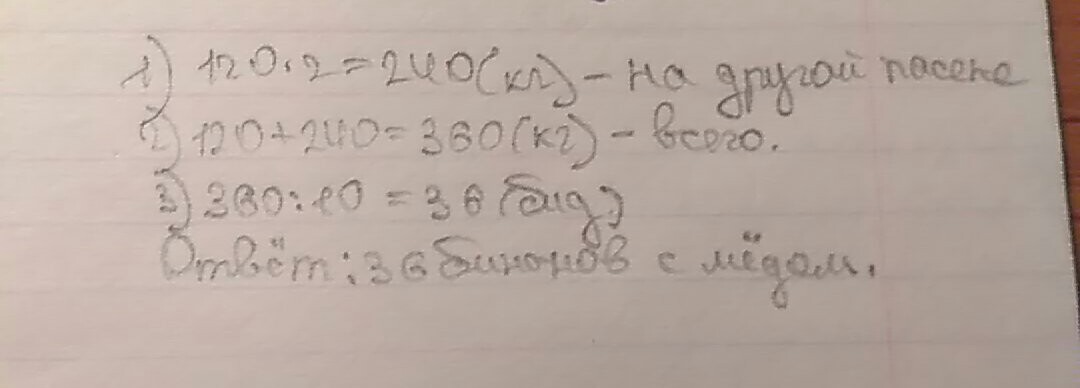 1) 120·2=240(кг)-на другой пасеке
2) 120+240=360(кг)-всего.
3) 360:10=36(бид.)
Ответ: 36 бинонов с мёдом.